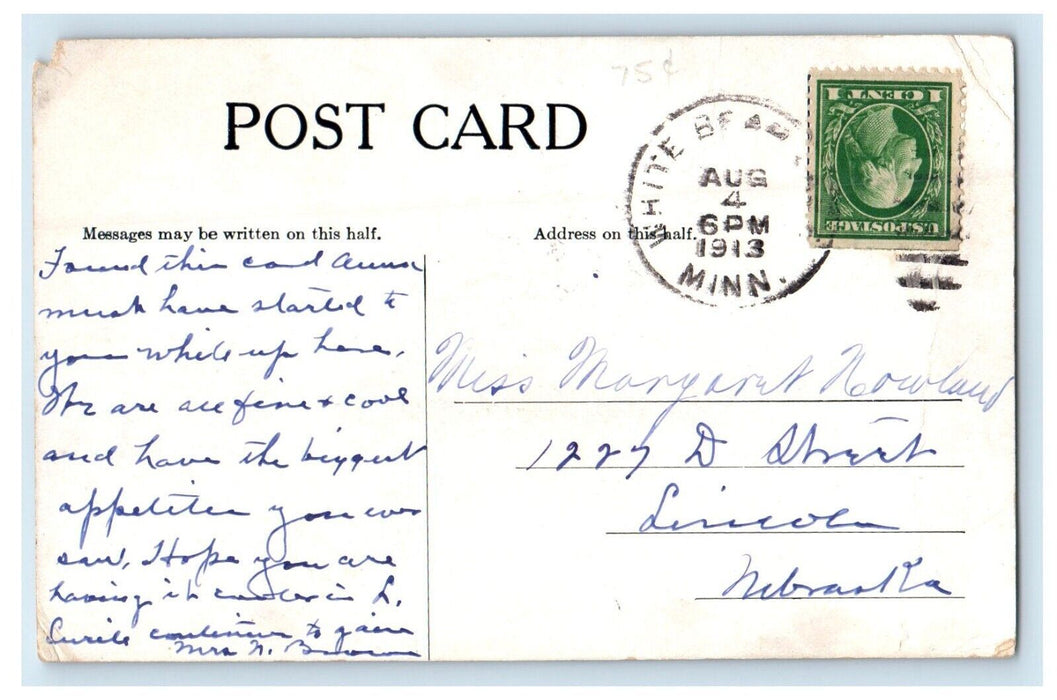 75¢
POST CARD
WHITE BEAR
AUG
4
6 PM
1913
MINN.
1 CENT 1
U.S. POSTAGE
Messages may be written on this half.
Address on this half.
Found this card Anna
must have started to
you while up here.
We are all fine & cool
and have the biggest
appetites you ever
saw. Hope you are
having it cooler in L.
Lucile continues to gain
Mrs N. Brown
Miss Margaret Howland
1227 D Street
Lincoln
Nebraska